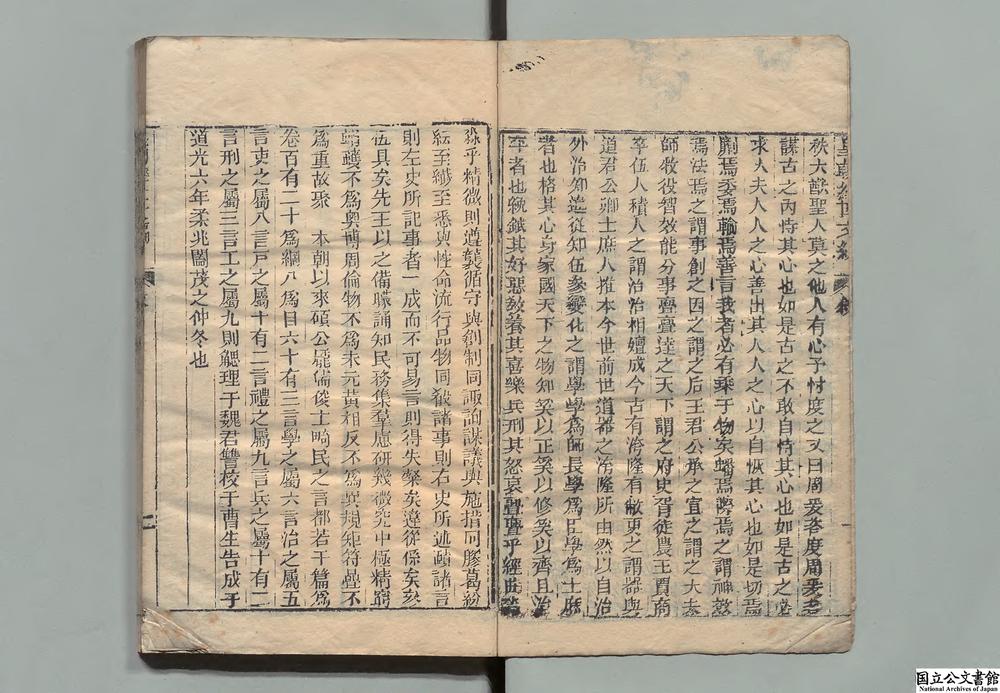 皇朝經世文編 敘
秩大猷聖人莫之他人有心予忖度之又曰周爰咨度周爰咨
謀古之丙恃其心也如是古之不敢自恃其心也如是古之善
求人夫人人之心善出其人人之心以自恢其心也如是切焉
劘焉委焉輸焉善言我者必有乘于物矣蟠焉際焉之謂神效
焉法焉之謂事創之因之謂之后王君公承之宜之謂之大夫
師牧役智效能分事亹亹達之天下謂之府史胥徒農工賈商
卒伍人積人之謂治治相嬗成今古有洿隆有敝更之謂器與
道君公卿士庶人推本今世前世道器之洿隆所由然以自治
外治知違從知伍參變化之謂學學爲師長學爲臣學爲士庶
者也格其心身家國天下之物知奚以正奚以修奚以齊且治
平者也鉞其好惡敎養其喜樂兵刑其怒哀亹亹乎經曲
淼乎精微則遵襲循守與創制同諏詢謀議與施措同膠葛紛
紜至纖至悉與性命流行品物同敎諸事則右史所述蹟諸言
則左史所記事者一成而不可易言則得失粲矣違從係矣參
伍具矣先王以之備矇誦知民務集羣慮研幾微究中極精窮
蛸蠖不爲奧博周倫物不爲末元黃相反不爲異規矩符疊不
爲重故聚　本朝以來碩公厖儒俊士畸民之言都若干篇爲
卷百有二十爲綱八爲目六十有三言學之屬六言治之屬五
言吏之屬八言戸之屬十有二言禮之屬九言兵之屬十有二
言刑之屬三言工之屬九則鰓理于魏君讐校于曹生告成于
道光六年柔兆閹茂之仲冬也
国立公文書館
National Archives of Japan